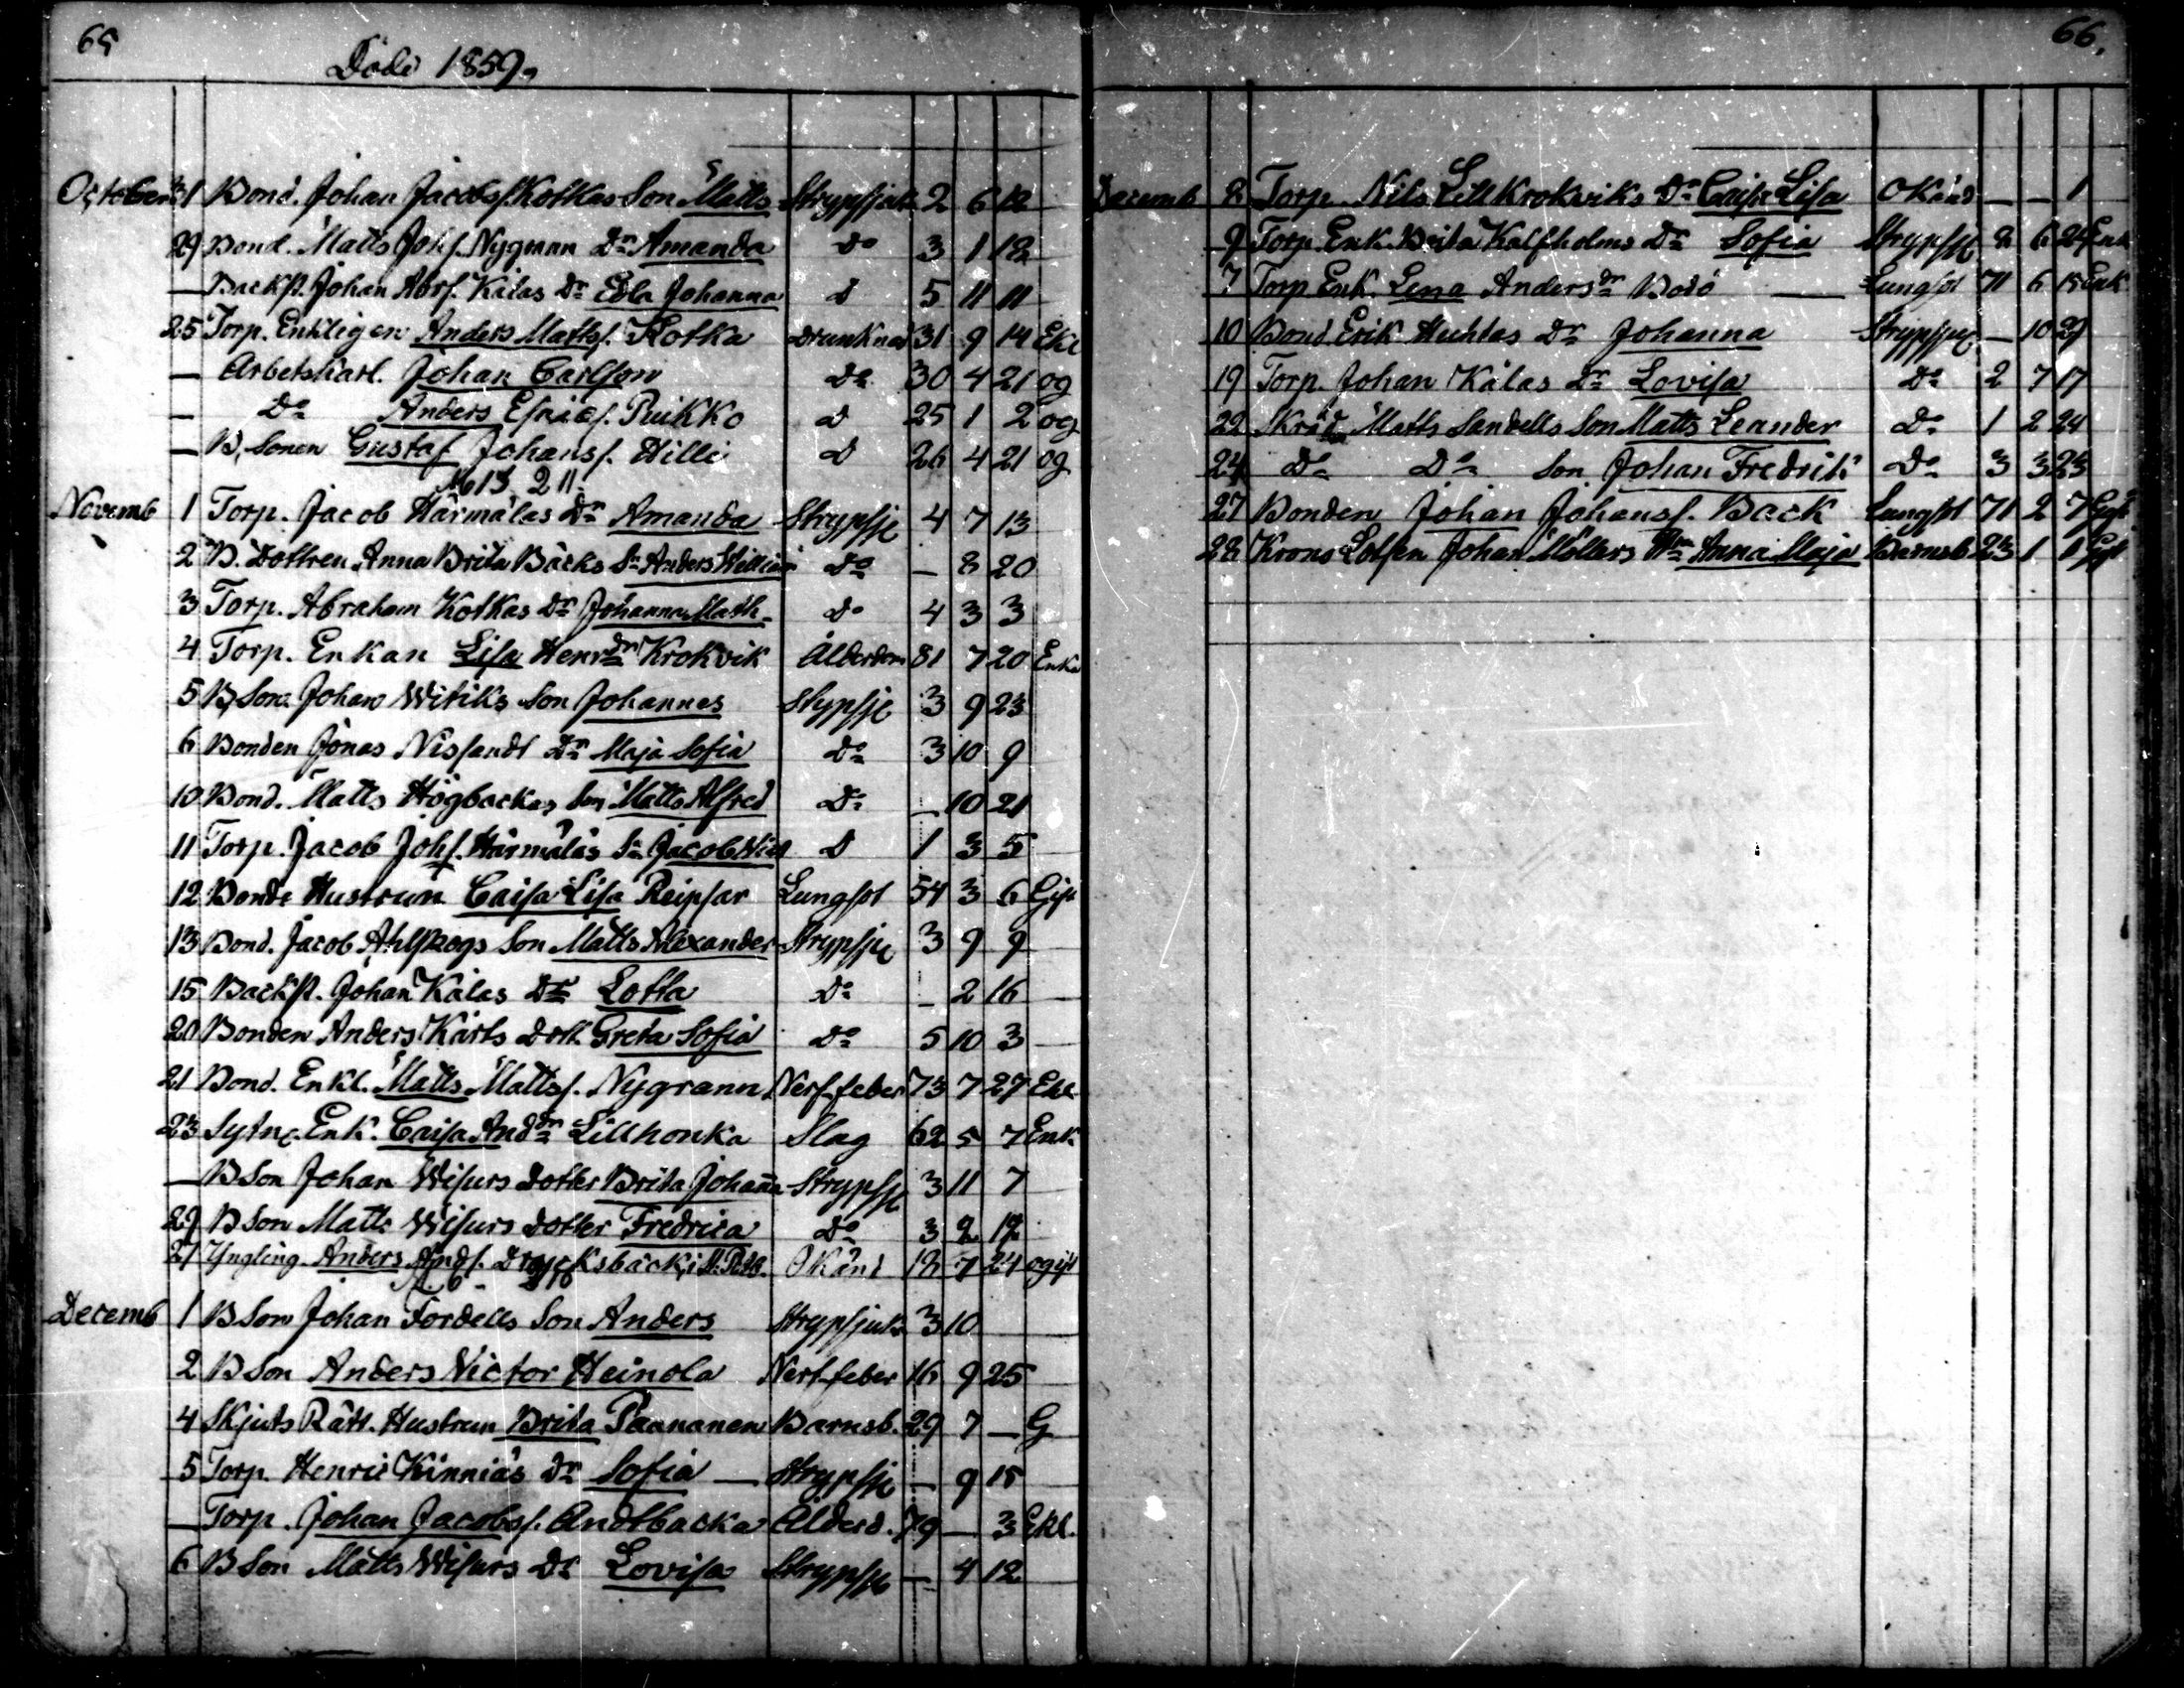 65
Döde 1859.
October 31 Bond. Johan Jacobss. Kotkas Son Matts Strypsjuk 2 6 12
29 Bond. Matts Johs. Nygman Dr Amanda Do 3 1 18
— Backst. Johan Abrs. Kälas Dr Edla Johanna d 5 11 11
25 Torp. Enklingen Anders Mattss. Kotka drunknad 31 9 14 Ekl
— Arbetskarl. Johan Carlson Do 30 4 21 og
— Do Anders Esaias. Puikko d 25 1 2 og
— B. Sonen Gustaf Johanss. Hilli d 26 4 21 og
M 13 2 11
Novemb 1 Torp. Jacob Härmälas Dr Amanda Strypsje 4 7 13
2 B. Dottren Anna Brita Bäcks Sn Anders William Do — 8 20
3 Torp. Abraham Kotkas Dr Johanna Math. Do 4 3 3
4 Torp. Enkan Lisa Henrdr Krokvik Ålderdom 81 7 20 Enka
5 B, Son Johan Witiks Son Johannes Stypsje 3 9 23
6 Bonden Jonas Nissandt Dr Maja Sofia Do 3 10 9
10 Bond. Matts Högbackas Son Matts Alfred Do — 10 21
11 Torp. Jacob Johs. Härmälas Sn Jacob Wict d 1 3 5
12 Bonde Hustrun Caisa Lisa Reipsar Lungsot 54 3 6 Gift
13 Bond. Jacob Ahlskogs Son Matts Alexander Strypsje 3 9 9
15 Backst. Johan Kälas Dr Lotta Do — 2 16
20 Bonden Anders Kärts Dott. Greta Sofia Do 5 10 3
21 Bond. Enkl. Matts Mattss. Nygrann Nerf-feber 73 7 27 Ekl
23 Sytne. Enk. Caisa Anddr Lillhonka Slag 62 5 7 Enk
— B Son Johan Wisurs Dotter Brita Johanna Strypsje 3 11 7
29 B Son Matts Wisurs Dotter Fredrica Do 3 2 12
27 Yngling Anders Ands. Drycksbäck, i Okänd 18 7 24 ogift
Decemb 1 B Son Johan Fordells Son Anders Strypsjuk 3 10
2 B Son Anders Victor Heinola Nerf-feber 16 9 25
4 Skjuts Rätt. Hustrun Brita Paananen Barnsb. 29 7 — G
5 Torp. Henric Kinniäs Dr Sofia — Strypsje — 9 15
— Torp. Johan Jacobss. Andtbacka Ålderd. 79 — 3 Ekl.
6 B Son Matts Wisurs Dr Lovisa Strypsje — 4 12
66.
Decemb 2 Torp. Nils Lill Krokviks Dr Caisa Lisa Okänd — — 1
9 Torp. Enk. Brita Kalfholms Dr Sofia Strypsje 2 6
7 Torp. Enk. Lena Andersdr Bodö — Lungsot 71 6 15 Enk
10 Bond Erik Huhtas Dr Johanna Strypsje — 10 29
19 Torp. Johan Kälas Dr Lovisa Do 2 7 17
22 Skräd Matts Sandells Son Matts Leander Do 1 2 24
24 Do Do Son Johan Fredrik Do 3 3 23
27 Bonden Johan Johanss. Back Lungsot 71 2 7 Gift
28 Krono Lotsen Johan Möllers Hu Anna Maja Barnsb 23 1 1 Gift